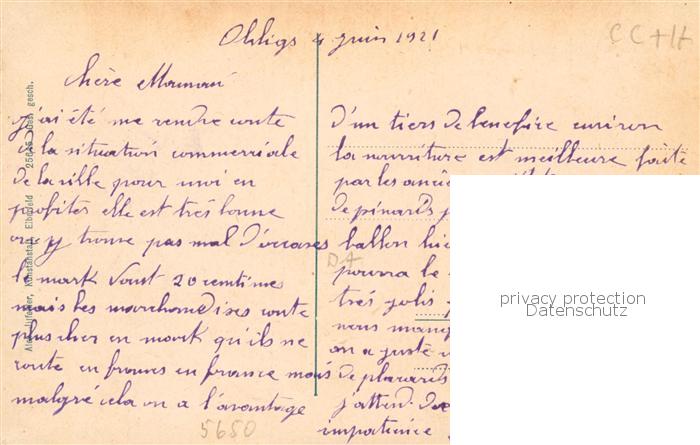 Ohligs 4 juin 1921
CC+H
chère Maman
j'ai été me rendre conte
de la situation commerciale
de la ville pour moi en
profiter elle est très bonne
on y trouve pas mal d'ocases
le mark vaut 20 centimes
mais les marchandises conte
plus cher en mark qu'ils ne
conte en francs en france mais
malgré cela on a l'avantage
d'un tiers de benefice environ
la nourriture est meilleure faite
par les
de pinards
ballon
pourra le
très jolis
nous
on a juste
de placards
j'attend
impatience
5650
privacy protection
Datenschutz